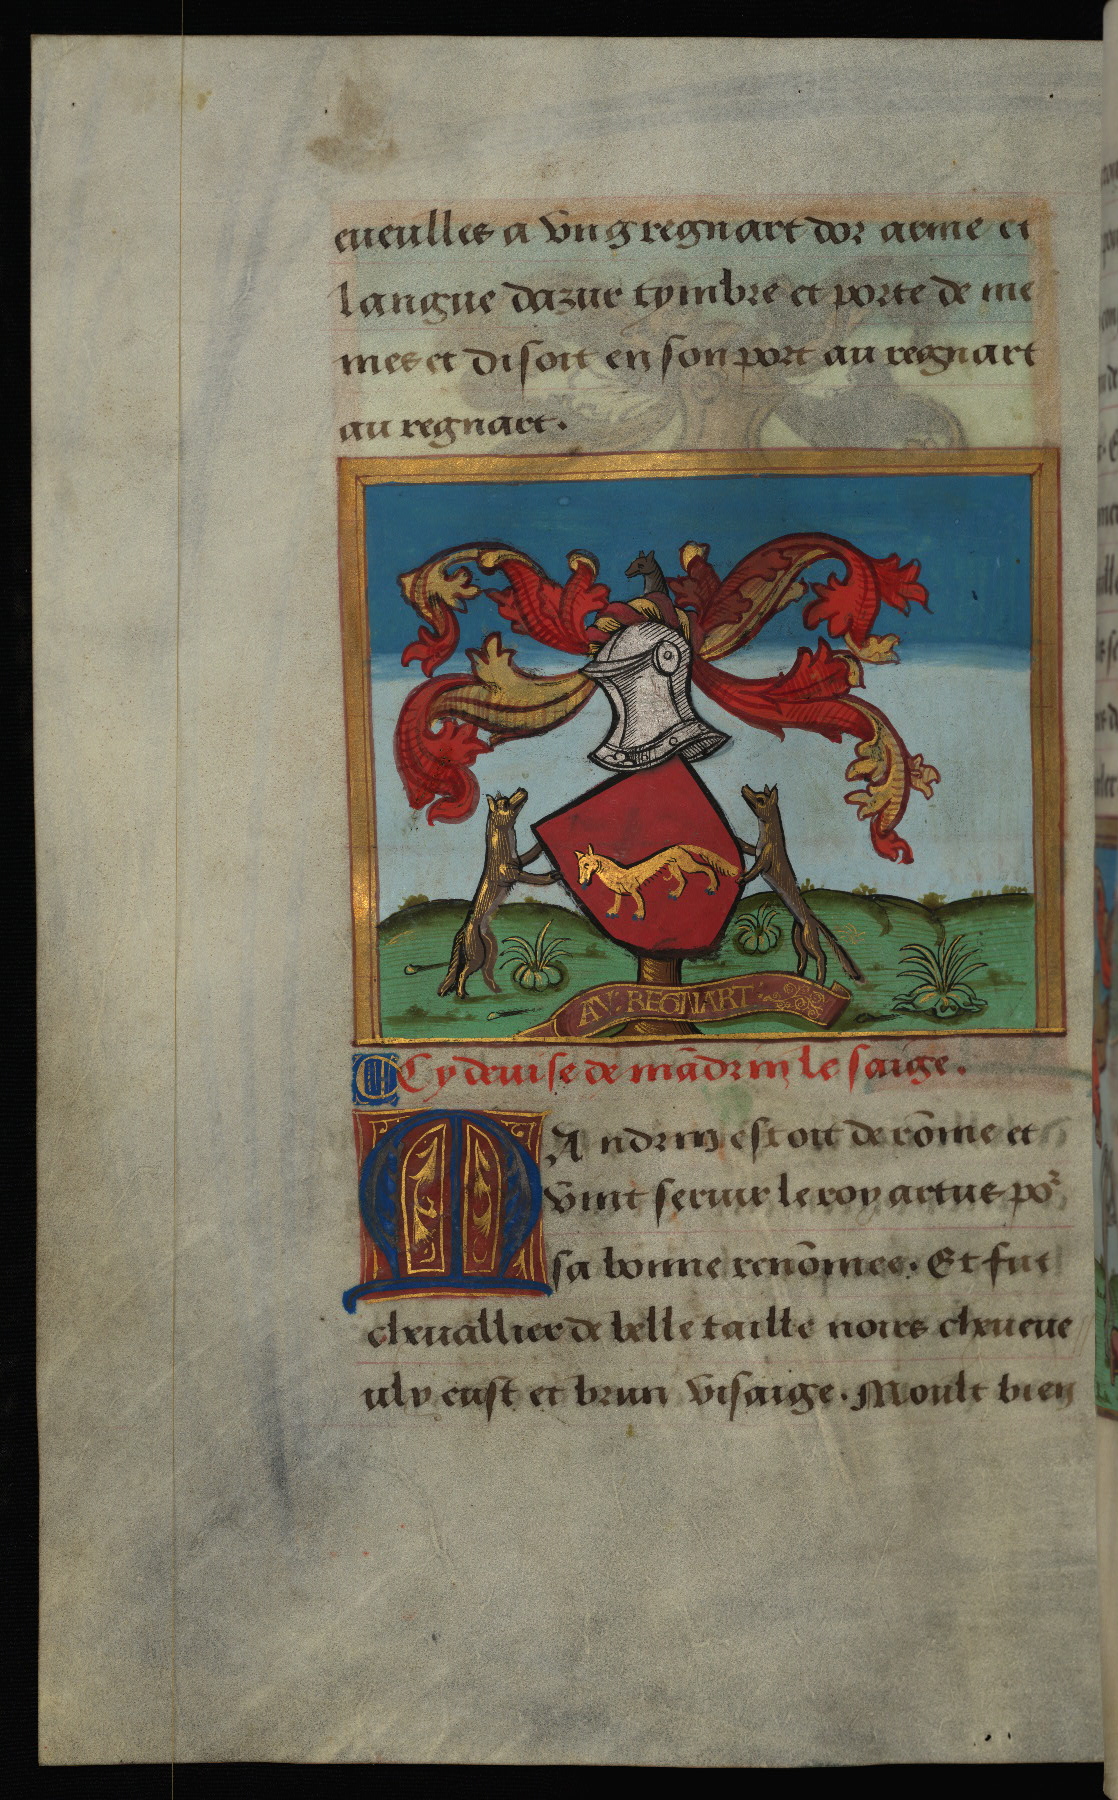 gueulles a vng regnart dor arme et
langue dazur tymbre et porte de me
mes et disoit en son port au regnart
au regnart.
AV: REGNART:
Cy deuise de mãdrin le saige.
MAndrin estoit de rõme et
vint seruir le roy artus po᷑
sa bonne renõmee. Et fut
cheuallier de belle taille noirs cheueue
uly eust et brun visaige. Moult bien